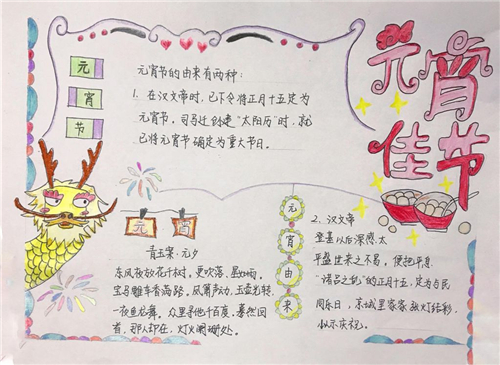 元
宵
节
元宵节的由来有两种：
1. 在汉文帝时，已下令将正月十五定为
元宵节，司马迁创建“太阳历”时，就
已将元宵节确定为重大节日。
元宵
佳节
元宵
青玉案·元夕
东风夜放花千树，更吹落、星如雨。
宝马雕车香满路，凤箫声动，玉壶光转，
一夜鱼龙舞。众里寻他千百度，蓦然回
首，那人却在，灯火阑珊处。
元
宵
由
来
2. 汉文帝
登基以后深感太
平盛世来之不易，便把平息
“诸吕之乱”的正月十五，定为与民
同乐日，京城里家家张灯结彩，
以示庆祝。